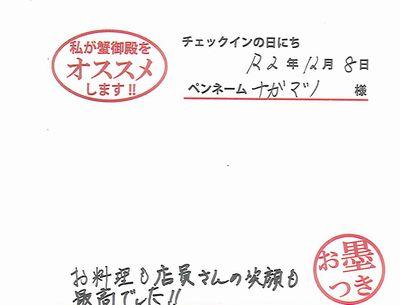 私が蟹御殿を
オススメ
します!!
チェックインの日にち
R2年12月8日
ペンネーム ナガマツ 様
お料理も店員さんの笑顔も
最高でした!!
お墨
つき